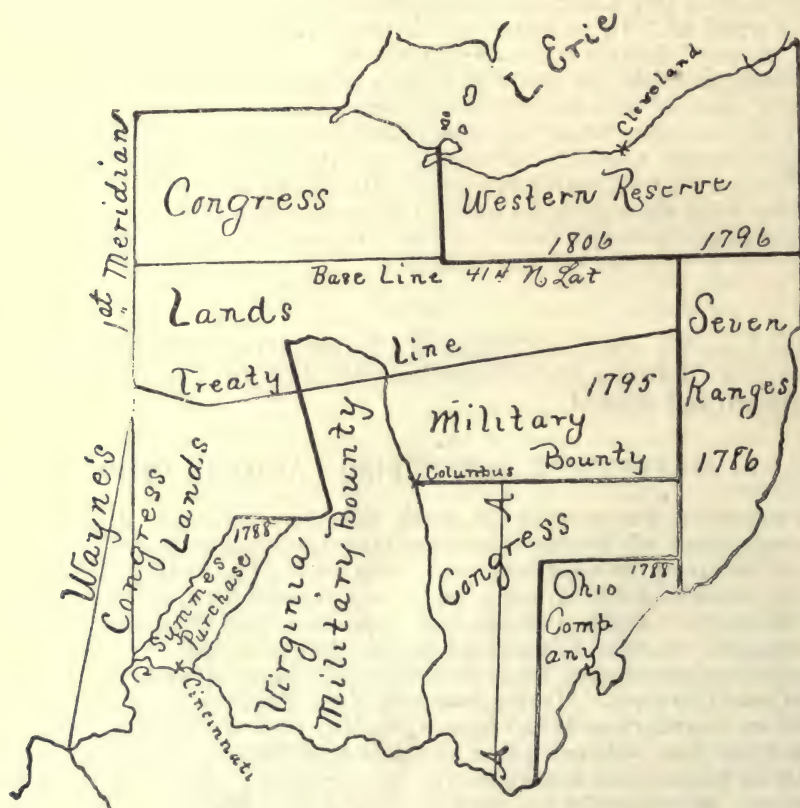 L Erie
Cleveland
1st Meridian
Congress
Western Reserve
1806 1796
Base Line 41st N Lat
Lands
Seven
Ranges
1786
Treaty Line
1795
Military
Bounty
Columbus
Wayne's
Congress
Lands
1788
Symmes
Purchase
Cincinnati
Virginia
Military Bounty
A
Congress
A
1788
Ohio
Comp
any